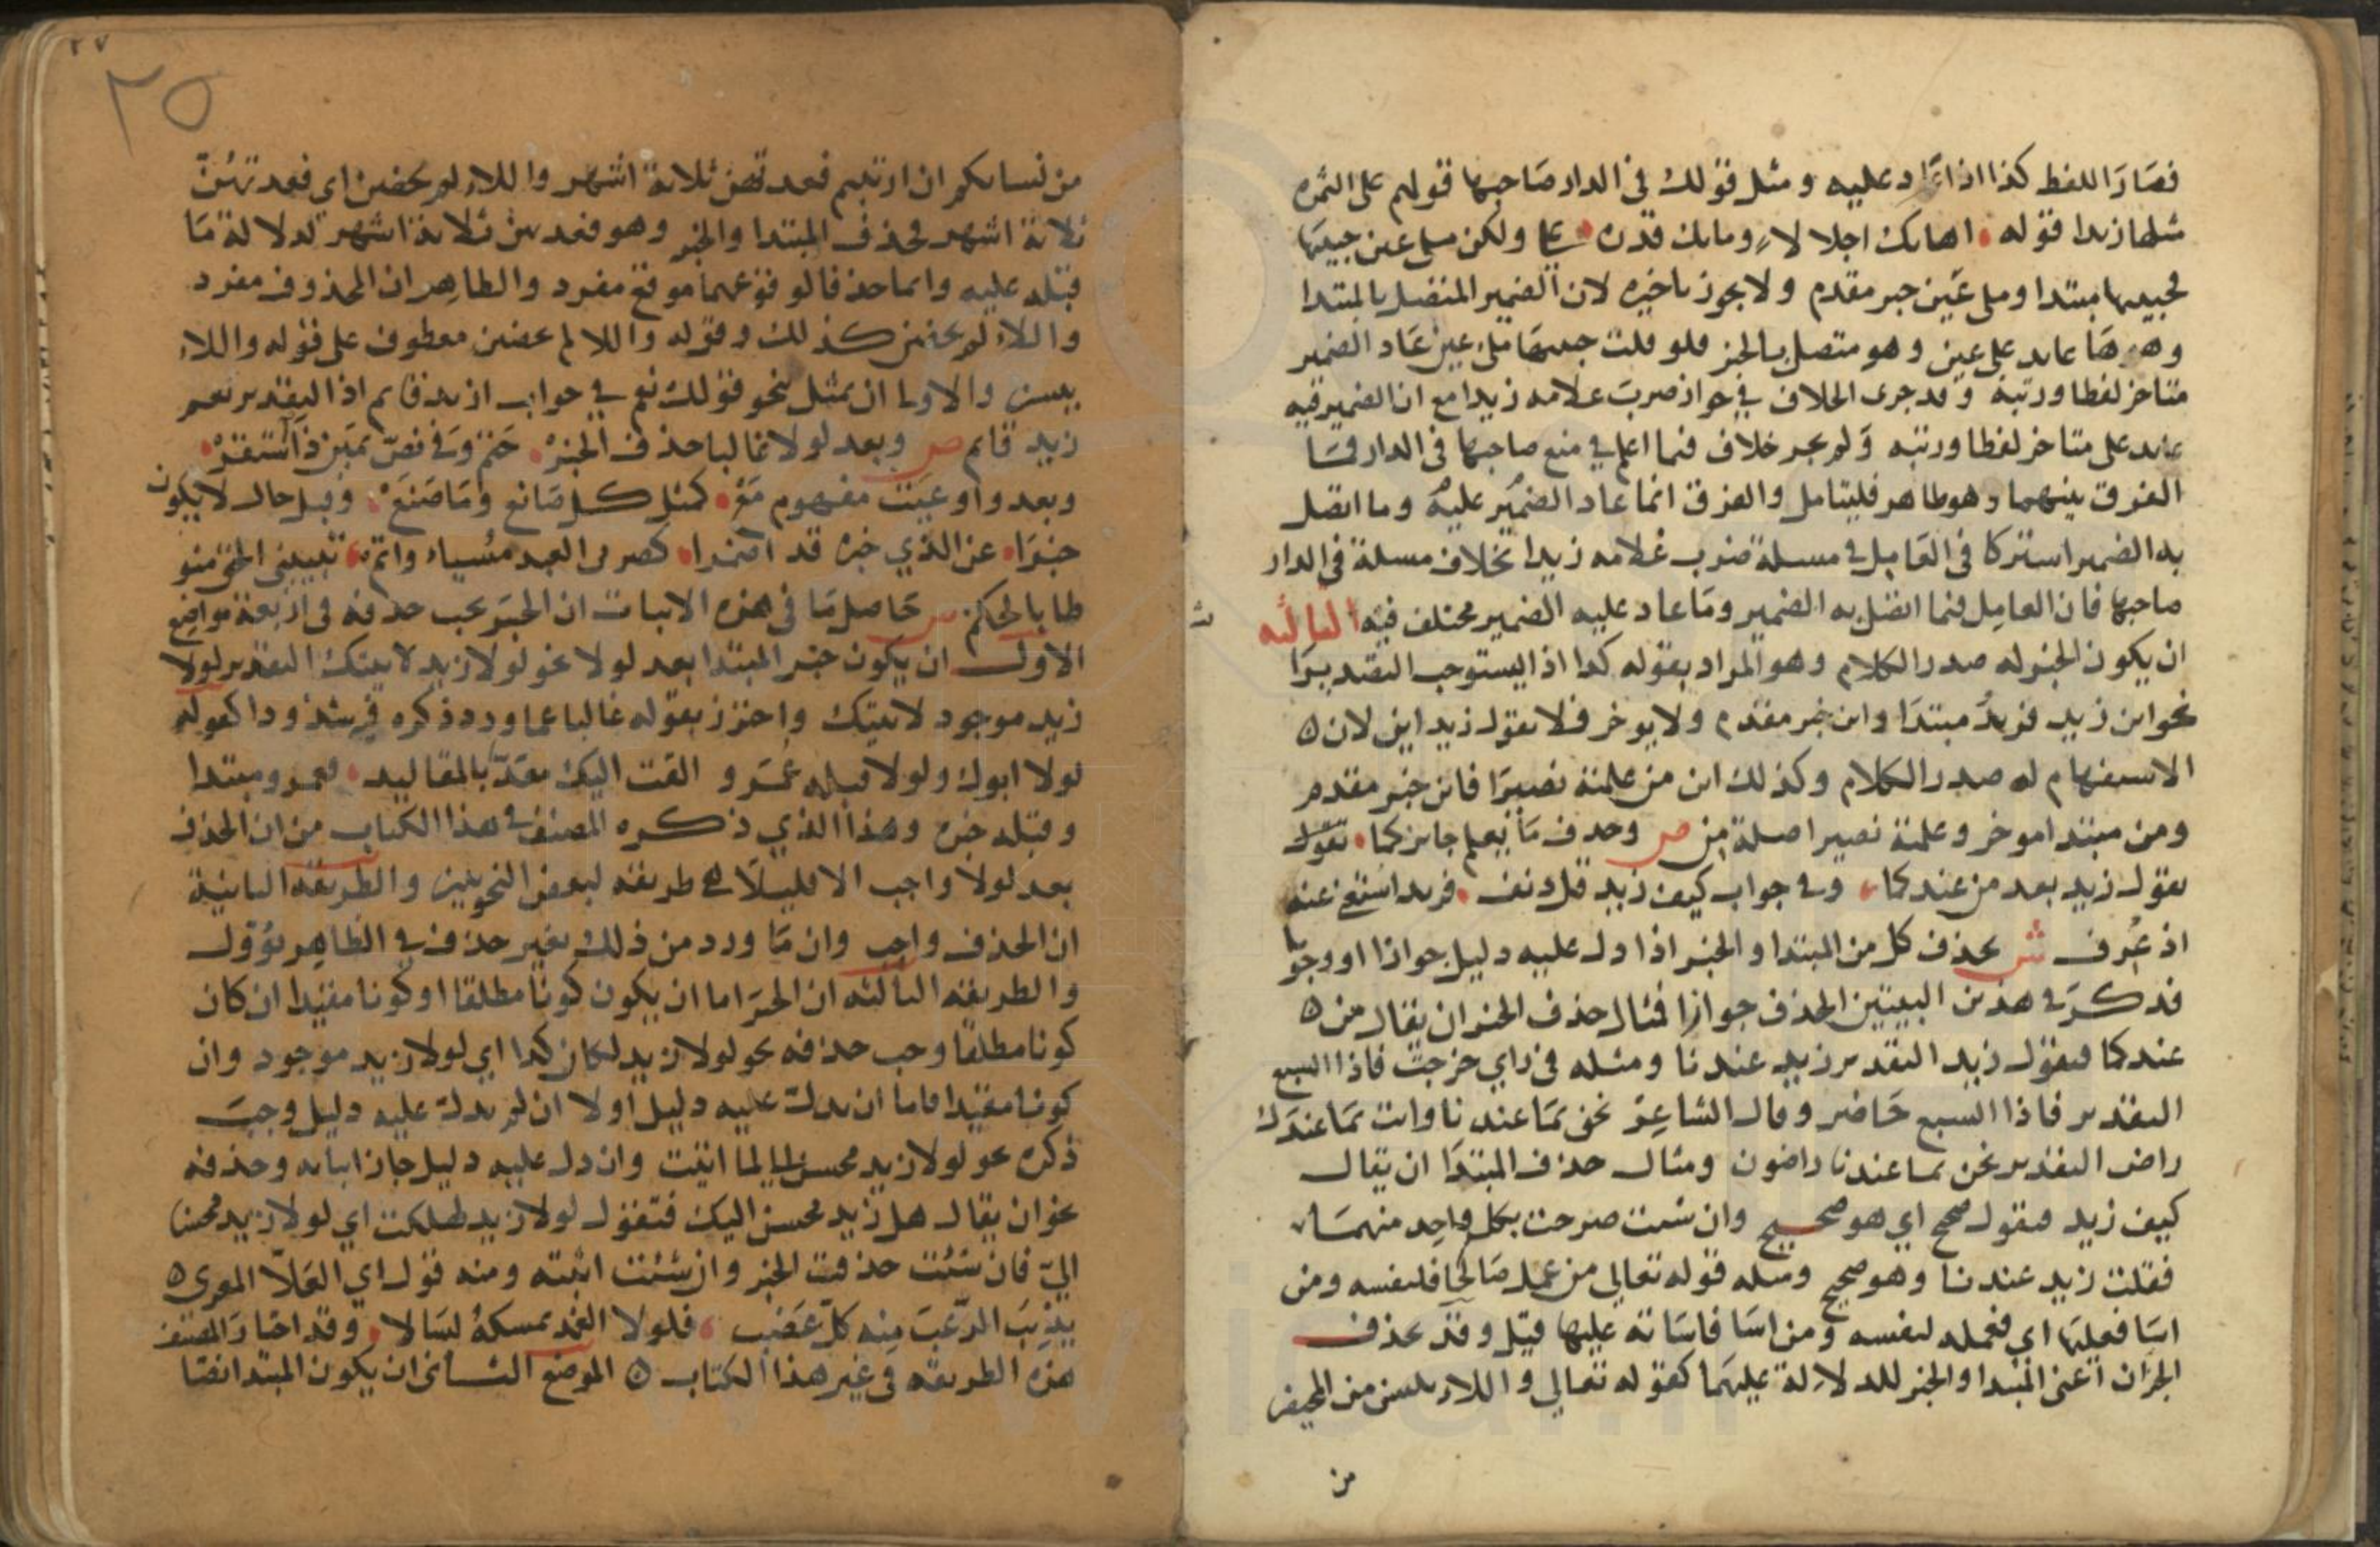 فصار اللفظ كذا اذا عاد عليه ومثل قولك في الدار صاحبها قولهم على التمرة
مثلها زبدا قوله اهابك اجلالا وما بك قدرة علي ولكن ملء عين حبيبها
فحبيبها مبتدا وملء عين خبر مقدم ولا يجوز تاخيره لان الضمير المتصل بالمبتدا
وهو ها عايد على عين وهو متصل بالخبر فلو قلت حبيبها ملء عين عاد الضمير
متاخر لفظا ورتبة وقد جرى الخلاف في جواز ضرب غلامه زيدا مع ان الضمير فيه
عايد على متاخر لفظا ورتبه ولم يجر خلاف فيما اعلم في منع صاحبها في الدار فما
الفرق بينهما وهو ظاهر فليتامل والفرق انما عاد الضمير عليه وما اتصل
به الضمير اشتركا في العامل في مسلة ضرب غلامه زيدا بخلاف مسلة في الدار
صاحبها فان العامل فيما اتصل به الضمير وما عاد عليه الضمير مختلف فيه الثالثه
ان يكون الخبر له صدر الكلام وهو المراد بقوله كذا اذا يستوجب التصديرا
نحو اين زيد فزيد مبتدا واين خبر مقدم ولا يوخر فلا تقول زيد اين لان
الاستفهام له صدر الكلام وكذلك اين من علمته نصيرا فاين خبر مقدم
ومن مبتدا موخر وعلمته نصيرا صلة من ص وحذف ما يعلم جايز كما تقول
تقول زيد بعد من عندكما وفي جواب كيف زيد قل دنف فزيد استغنى عنه
اذ عرف ش يحذف كل من المبتدا والخبر اذا دل عليه دليل جوازا او وجوبا
فذكر في هذين البيتين الحذف جوازا فمثال حذف الخبر ان يقال من
عندكما فتقول زيد التقدير زيد عندنا ومثله في راي خرجت فاذا السبع
التقدير فاذا السبع حاضر وقال الشاعر نحن بما عندنا وانت بما عندك
راض التقدير نحن بما عندنا راضون ومثال حذف المبتدا ان يقال
كيف زيد فتقول صحيح اي هو صحيح وان شيت صرحت بكل واحد منهما
فقلت زيد عندنا وهو صحيح ومثله قوله تعالى من عمل صالحا فلنفسه ومن
اسا فعليها اي فعمله لنفسه ومن اسا فاساته عليها قيل وقد يحذف
الجزان اعني المبتدا والخبر للدلالة عليهما كقوله تعالى واللاء يئسن من المحيض
من
٢٥
من نسايكم ان ارتبتم فعدتهن ثلاثة اشهر واللاء لم يحضن اي فعدتهن
ثلاثة اشهر فحذف المبتدا والخبر وهو فعدتهن ثلاثة اشهر لدلالة ما
قبله عليه وانما حذفا لوقوعهما موقع مفرد والظاهر ان المحذوف مفرد
واللاء لم يحضن كذلك وقوله واللا لم يحضن معطوف على قوله واللاء
يئسن والاولى ان يمثل بنحو قولك نعم في جواب ازيد قايم اذ التقدير نعم
زيد قايم ص وبعد لولا غالبا حذف الخبر حتم وفي نص يمين ذا استقر
وبعد واو عينت مفهوم مع كمثل كل صانع وما صنع وقبل حال لا يكون
خبرا عن الذي خبره قد اضمرا كضربي العبد مسيا واتم تبييني الحق منو
طا بالحكم ش حاصل ما في هذه الابيات ان الخبر يجب حذفه في اربعة مواضع
الاول ان يكون خبر المبتدا بعد لولا نحو لولا زيد لاتيتك التقدير لولا
زيد موجود لاتيتك واحترز بقوله غالبا عما ورد ذكره فيه شذوذا كقوله
لولا ابوك ولولا قبله عمرو القت اليك معد بالمقاليد فعمرو مبتدا
وقبله خبره وهذا الذي ذكره المصنف في هذا الكتاب من ان الحذف
بعد لولا واجب الا قليلا هي طريقه لبعض النحويين والطريقه الثانية
ان الحذف واجب وان ما ورد من ذلك بغير حذف في الظاهر مؤول
والطريقه الثالثه ان الخبر اما ان يكون كونا مطلقا او كونا مقيدا ان كان
كونا مطلقا وجب حذفه نحو لولا زيد لكان كذا اي لولا زيد موجود وان
كونا مقيدا فاما ان يدل عليه دليل اولا ان لم يدل عليه دليل وجب
ذكره نحو لولا زيد محسن الي لما اتيت وان دل عليه دليل جاز اثباته وحذفه
نحو ان يقال هل زيد محسن اليك فتقول لولا زيد لهلكت اي لولا زيد محسن
الي فان شئت حذفت الخبر وان شئت اثبته ومنه قول ابي العلا المعري
يذيب الرعب منه كل عضب فلولا الغمد يمسكه لسالا وقد اختار المصنف
هذه الطريقه في غير هذا الكتاب الموضع الثاني ان يكون المبتدا نصا